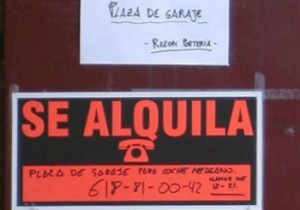 PLAZA DE GARAJE
- RAZÓN PORTERIA -
SE ALQUILA
PLAZA DE GARAJE PARA COCHE MEDIANO.
618-81-00-42
LLAMAR DE